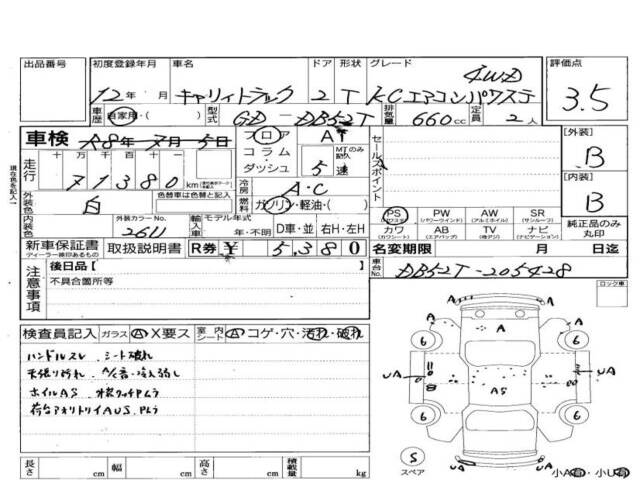 出品番号
初度登録年月
12年 月
車名
キャリィトラック
ドア
2
形状
T
グレード
4WD
KCエアコンパワステ
評価点
3.5
車歴
自家用・( )
型式
GD-DB52T
排気量
660cc
定員
2人
車検
A8年7月5日
フロア
コラム・
ダッシュ
AT
MTのみ記入
5速
セールスポイント
[外装]
B
[内装]
B
走行
十 万 千 百 十 一
71380km
冷房
A・C
燃料
ガソリン・軽油・( )
外装色
白
内装色
色替車は色替と記入
外装カラーNo.
26U
輸入車
モデル年式
年・不明
D車・並
右H・左H
PS
(パワステ)
PW
(パワーウインド)
AW
(アルミホイル)
SR
(サンルーフ)
カワ
(カワシート)
AB
(エアバッグ)
TV
(純アリ)
ナビ
(ナビゲーション)
純正品のみ
丸印
現在色を記入
新車保証書
ディーラー様印あるもの
取扱説明書
R券 ¥ 5380
名変期限 月 日迄
車台No.
DB52T-205428
注意事項
後日品[ ]
不具合箇所等
ロック車
検査員記入
ガラス A X要ス
室内シート A コゲ・穴・汚れ・破れ
ハンドルスレ、シート破れ
天張り汚れ、A/C音・冷え弱し
ホイルAS
荷台アオリトリイAUS、Pムラ
長さ cm
幅 cm
高さ cm
積載量 kg
A
A
6
6
UA
UA
AS
6
6
S
スペア
UA
小A有・小U有